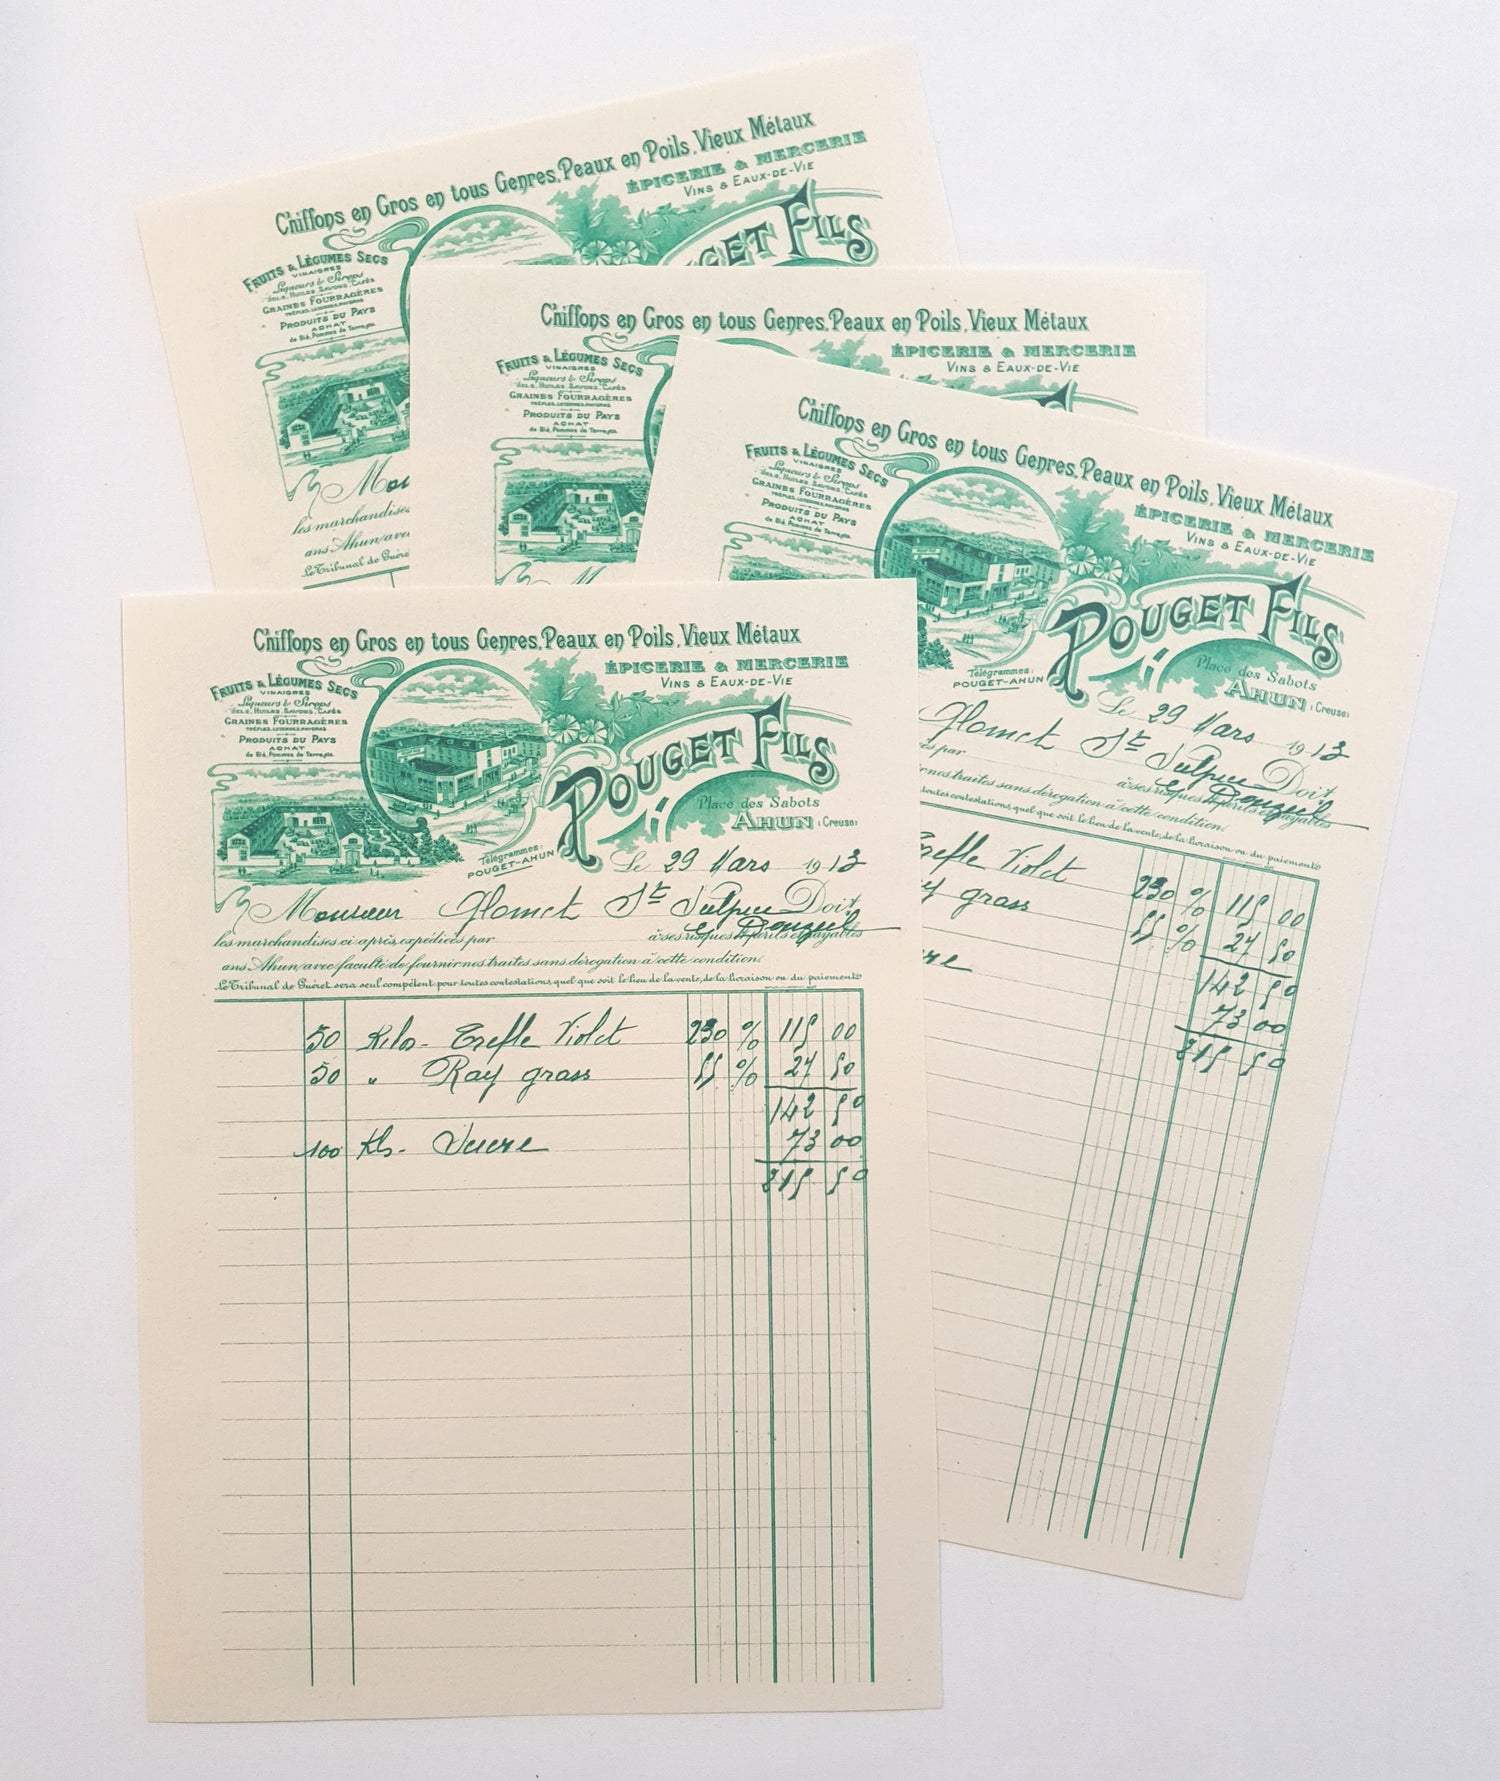 Chiffons en Gros en tous Genres, Peaux en Poils, Vieux Métaux
ÉPICERIE & MERCERIE
VINS & EAUX-DE-VIE
FRUITS & LÉGUMES SECS
VINAIGRES
Liqueurs & Sirops
SELS, HUILES, SAVONS, CAFÉS
GRAINES FOURRAGÈRES
TRÈFLES, LUZERNES, RAYGRAS
PRODUITS DU PAYS
ACHAT
de Blé, Pommes de Terre, etc.
OUGET FILS
Mon
les marchandises
ans Ahun/avec
Le Tribunal de Guéret
Chiffons en Gros en tous Genres, Peaux en Poils, Vieux Métaux
ÉPICERIE & MERCERIE
VINS & EAUX-DE-VIE
FRUITS & LÉGUMES SECS
VINAIGRES
Liqueurs & Sirops
SELS, HUILES, SAVONS, CAFÉS
GRAINES FOURRAGÈRES
TRÈFLES, LUZERNES, RAYGRAS
PRODUITS DU PAYS
ACHAT
de Blé, Pommes de Terre, etc.
Chiffons en Gros en tous Genres, Peaux en Poils, Vieux Métaux
ÉPICERIE & MERCERIE
VINS & EAUX-DE-VIE
FRUITS & LÉGUMES SECS
VINAIGRES
Liqueurs & Sirops
SELS, HUILES, SAVONS, CAFÉS
GRAINES FOURRAGÈRES
TRÈFLES, LUZERNES, RAYGRAS
PRODUITS DU PAYS
ACHAT
de Blé, Pommes de Terre, etc.
POUGET FILS
Place des Sabots
AHUN (Creuse)
Télégrammes:
POUGET-AHUN
Le 29 Mars 1913
Glomet St Sulpice Doit
par à ses risques et périls et payables
nos traites sans dérogation à cette condition.
toutes contestations, quel que soit le lieu de la vente, de la livraison ou du paiement
Trefle Violet 230 % 115 00
Ray grass 55 % 27 50
142 50
Sucre 73 00
215 50
Chiffons en Gros en tous Genres, Peaux en Poils, Vieux Métaux
ÉPICERIE & MERCERIE
VINS & EAUX-DE-VIE
FRUITS & LÉGUMES SECS
VINAIGRES
Liqueurs & Sirops
SELS, HUILES, SAVONS, CAFÉS
GRAINES FOURRAGÈRES
TRÈFLES, LUZERNES, RAYGRAS
PRODUITS DU PAYS
ACHAT
de Blé, Pommes de Terre, etc.
POUGET FILS
Place des Sabots
AHUN (Creuse)
Télégrammes:
POUGET-AHUN
Le 29 Mars 1913
Monsieur Glomet St Sulpice Doit
les marchandises ci après, expédiées par à ses risques et périls et payables
ans Ahun/avec faculté de fournir nos traites sans dérogation à cette condition.
Le Tribunal de Guéret sera seul compétent pour toutes contestations, quel que soit le lieu de la vente, de la livraison ou du paiement
50 Kilos - Trefle Violet 230 % 115 00
50 " Ray grass 55 % 27 50
142 50
100 Kls - Sucre 73 00
215 50